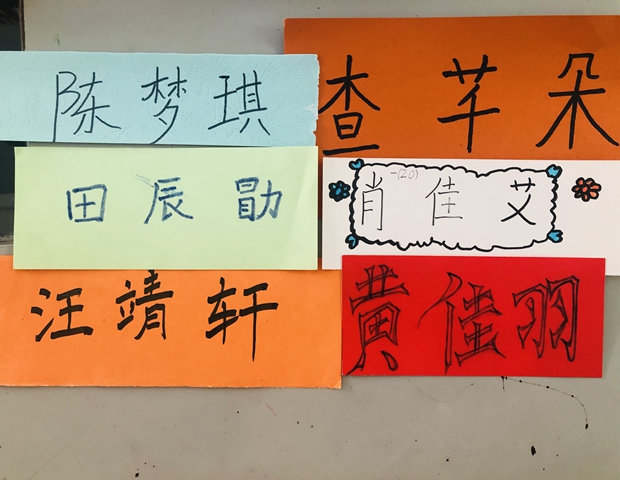 陈梦琪
查芊朵
田辰勖
一(20)
肖佳艾
汪靖轩
黄佳羽